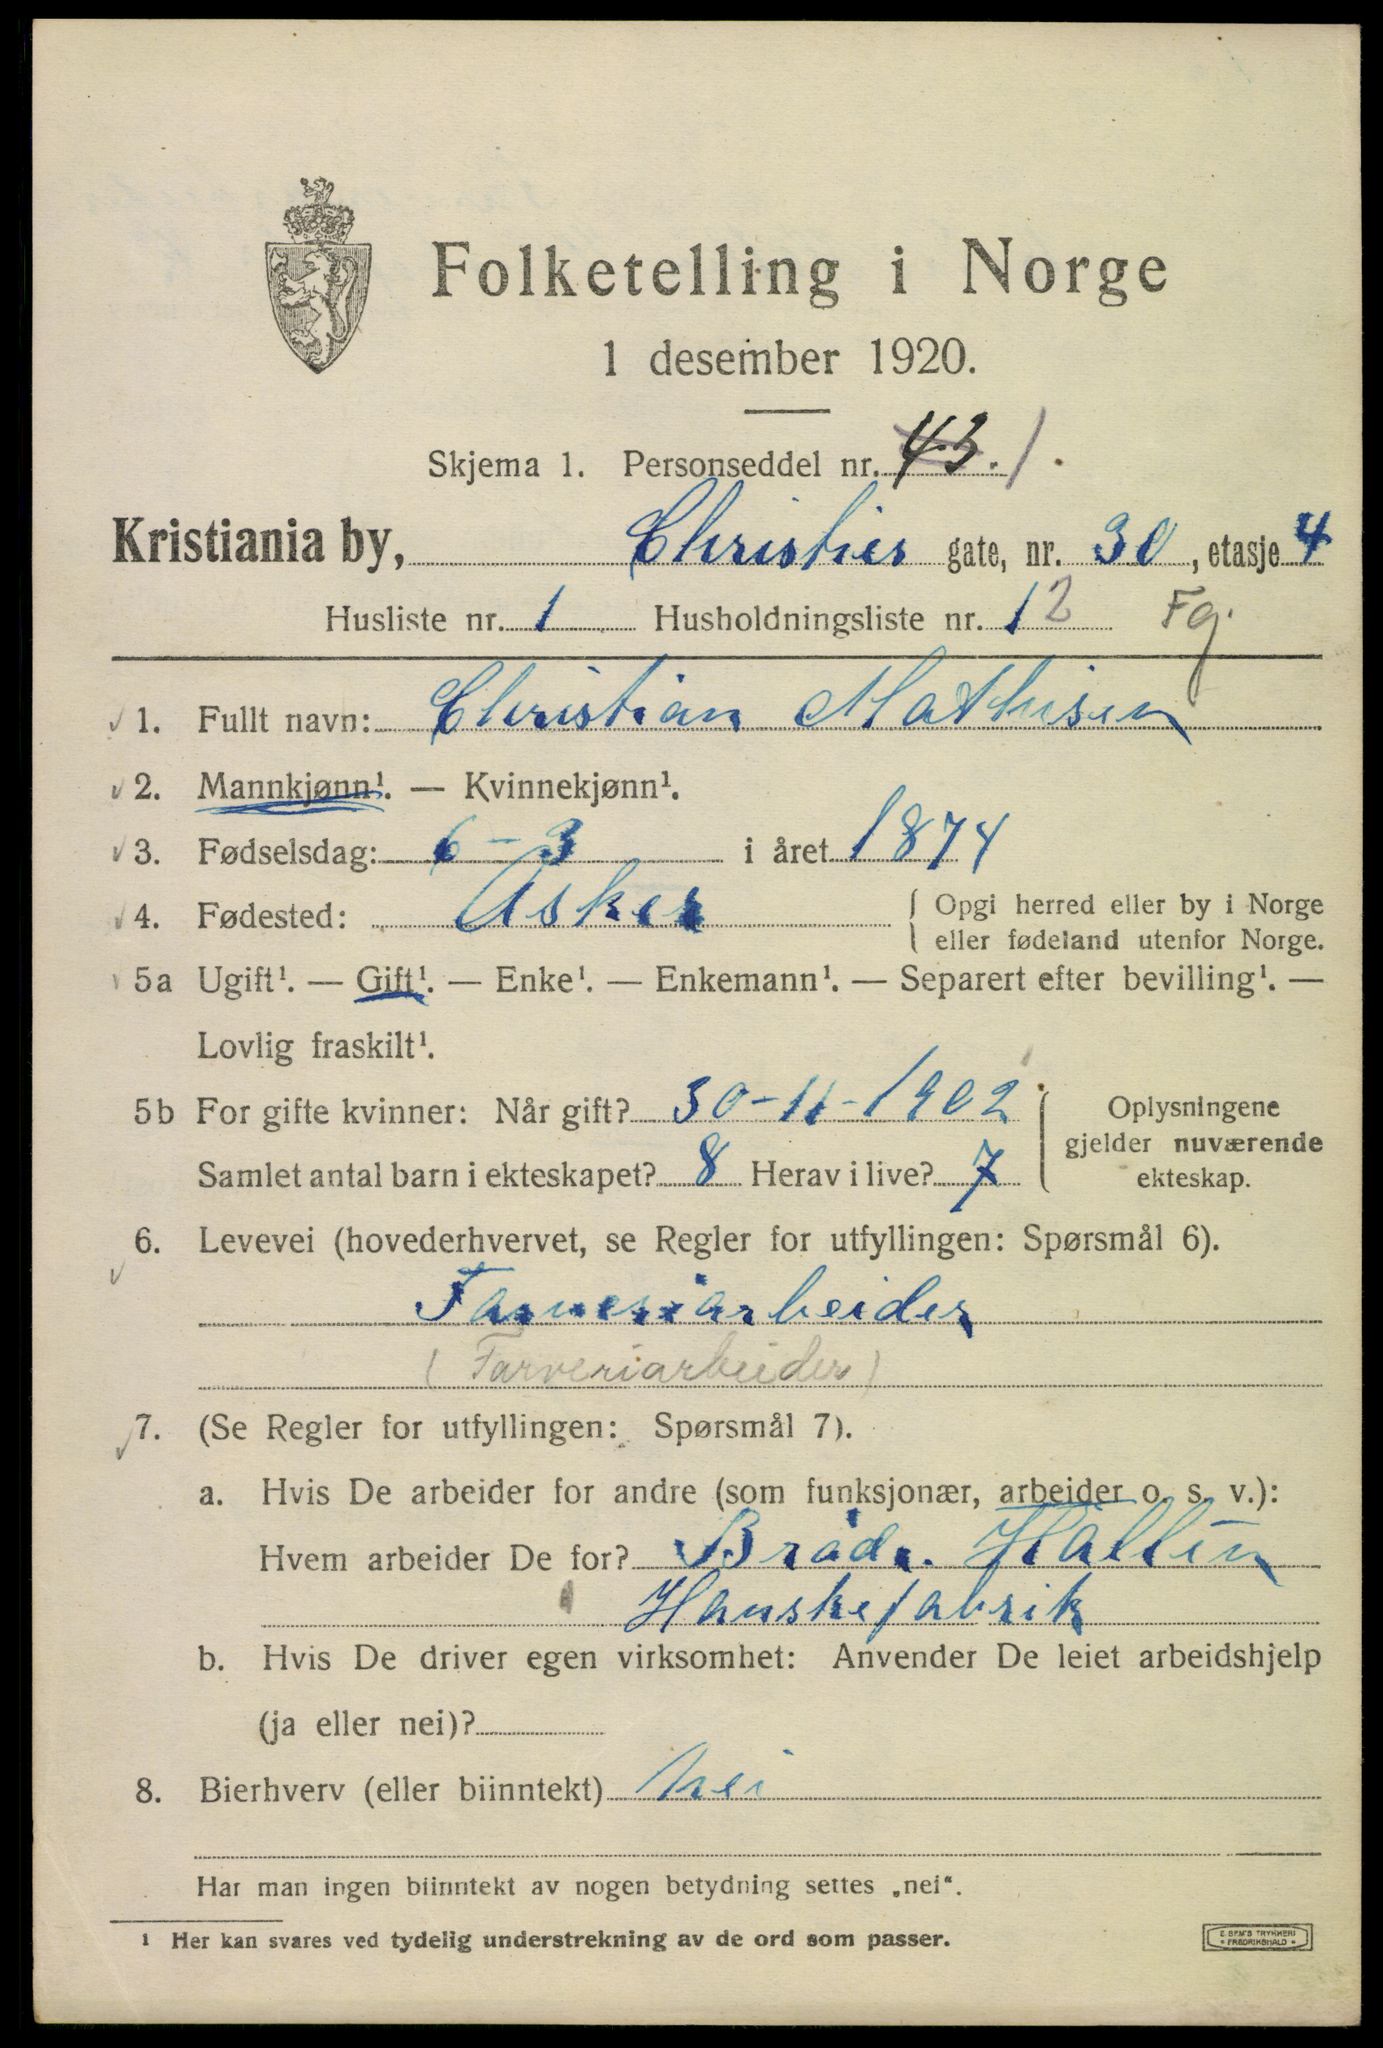 Folketelling i Norge
1 desember 1920.
Skjema 1. Personseddel nr. 43. 1.
Kristiania by, Christies gate, nr. 30, etasje 4
Husliste nr. 1 Husholdningsliste nr. 12 Fg.
1. Fullt navn: Christian Mathisen
2. Mannkjønn¹. — Kvinnekjønn¹.
3. Fødselsdag: 6 - 3 i året 1874
4. Fødested: Asker { Opgi herred eller by i Norge
eller fødeland utenfor Norge.
5a Ugift¹. — Gift¹. — Enke¹. — Enkemann¹. — Separert efter bevilling¹. —
Lovlig fraskilt¹.
5b For gifte kvinner: Når gift? 30-11-1902
Samlet antal barn i ekteskapet? 8 Herav i live? 7
Oplysningene
gjelder nuværende
ekteskap.
6. Levevei (hovederhvervet, se Regler for utfyllingen: Spørsmål 6).
Farveriarbeider
(Farveriarbeider)
7. (Se Regler for utfyllingen: Spørsmål 7).
a. Hvis De arbeider for andre (som funksjonær, arbeider o. s. v.):
Hvem arbeider De for? Brødr. Hallin
Hanskefabrik
b. Hvis De driver egen virksomhet: Anvender De leiet arbeidshjelp
(ja eller nei)?
8. Bierhverv (eller biinntekt) Nei
Har man ingen biinntekt av nogen betydning settes „nei“.
¹ Her kan svares ved tydelig understrekning av de ord som passer.
E. SEM'S TRYKKERI
• FREDRIKSHALD •